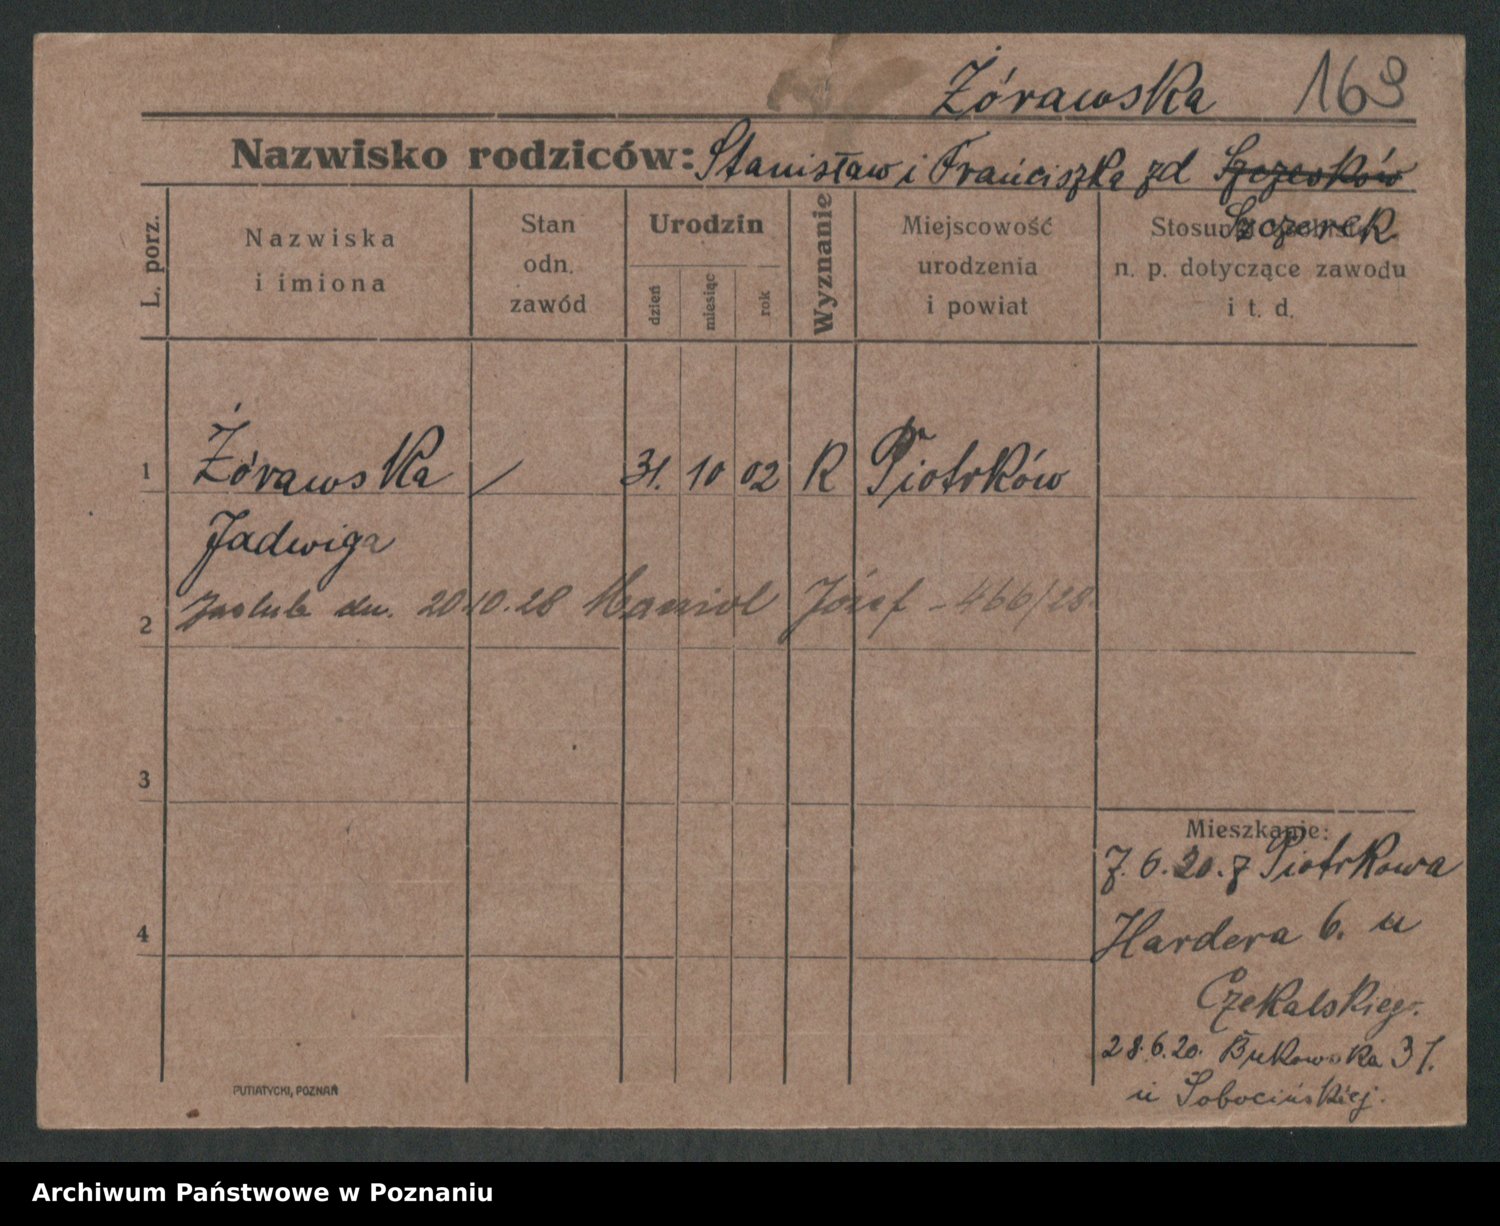 Żórawska 169
Nazwisko rodziców: Stanisław i Franciszka zd Szczerków
Szczerek
L. porz.
Nazwiska
i imiona
Stan
odn.
zawód
Urodzin
dzień
miesiąc
rok
Wyznanie
Miejscowość
urodzenia
i powiat
n. p. dotyczące zawodu
i t. d.
1 Żórawska / 31. 10 02 R Piotrków
Jadwiga
2 zaślub dn. 20.10.28 Józef - 466/28.
3
Mieszkanie:
7.6.20. z Piotrkowa
4
Hardera 6. u
Czekalskiego.
28.6.20. Bukowska 31.
u Sobocińskiej.
PUTIATYCKI, POZNAŃ
Archiwum Państwowe w Poznaniu